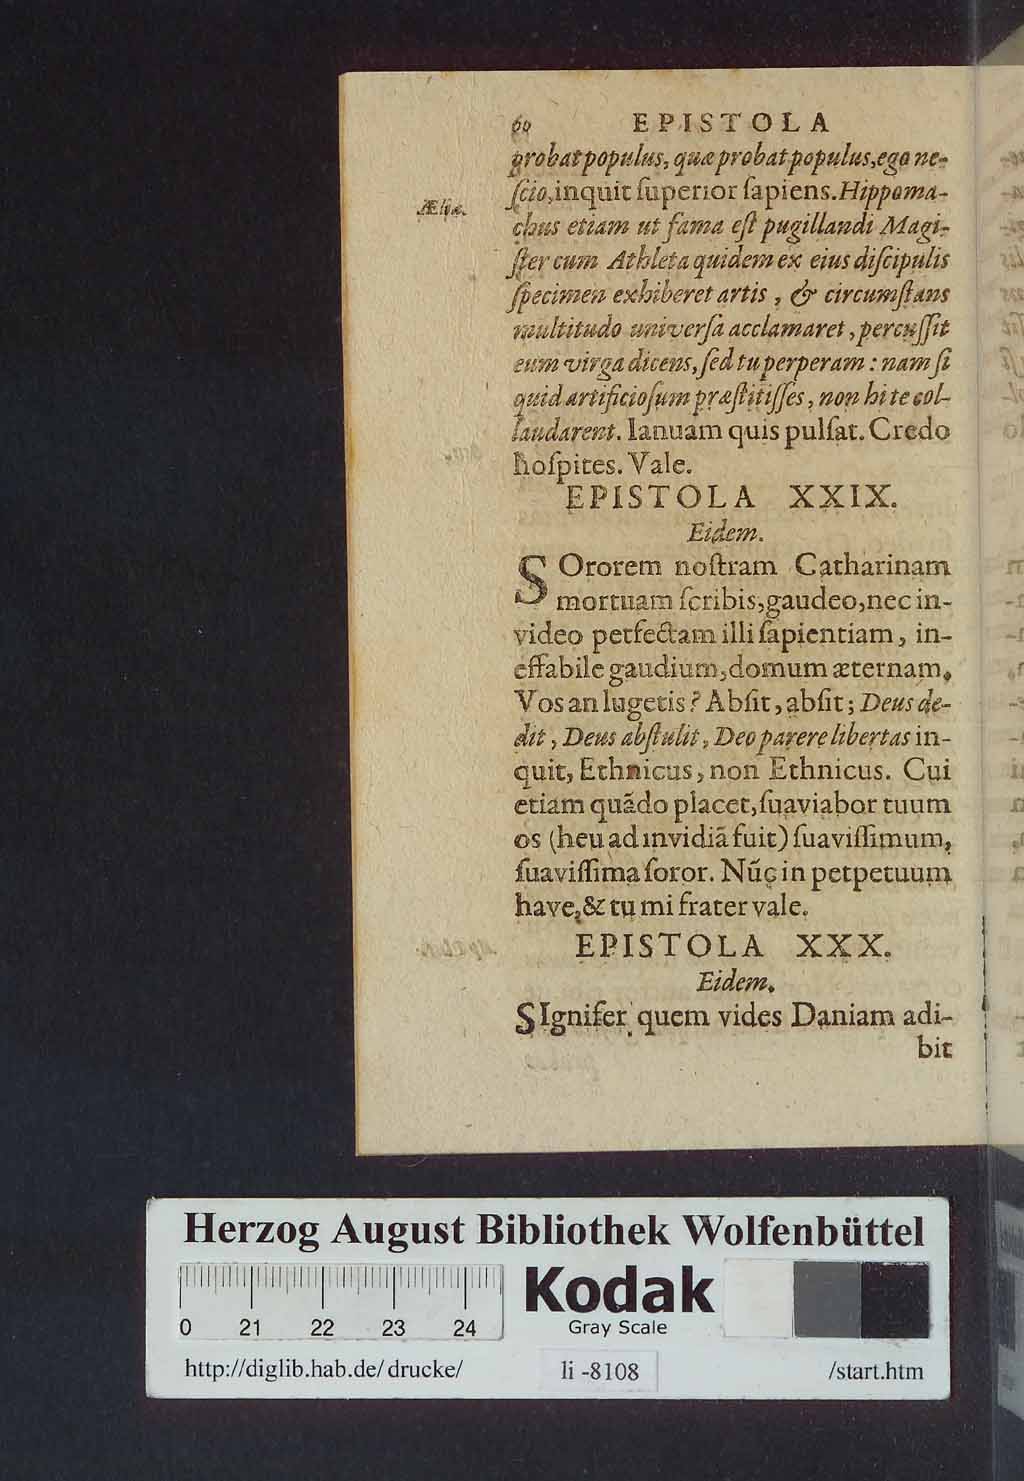 60 EPISTOLA
probat populus, quæ probat populus, ego ne-
ſcio, inquit ſuperior ſapiens. Hippoma-
Æliæ.
chus etiam ut fama eſt pugillandi Magi-
ſter cum Athleta quidem ex eius diſcipulis
ſpecimen exhiberet artis, & circumſtans
multitudo univerſa acclamaret, percuſſit
eum virga dicens, ſed tu perperam: nam ſi
quid artificioſum præſtitiſſes, non hi te col-
laudarent. Ianuam quis pulſat. Credo
hoſpites. Vale.
EPISTOLA XXIX.
Eidem.
SOrorem noſtram Catharinam
mortuam ſcribis, gaudeo, nec in-
video petfectam illi ſapientiam, in-
effabile gaudium, domum æternam,
Vos an lugetis? Abſit, abſit; Deus de-
dit, Deus abſtulit, Deo parere libertas in-
quit, Ethnicus, non Ethnicus. Cui
etiam quãdo placet, ſuaviabor tuum
os (heu ad invidiã fuit) ſuaviſſimum,
ſuaviſſima ſoror. Nũc in petpetuum
have, & tu mi frater vale.
EPISTOLA XXX.
Eidem.
SIgnifer quem vides Daniam adi-
bit
Herzog August Bibliothek Wolfenbüttel
0 21 22 23 24
Kodak
Gray Scale
http://diglib.hab.de/drucke/ li -8108 /start.htm